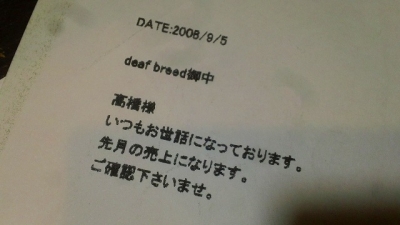 DATE:2008/9/5
deaf breed御中
高橋様
いつもお世話になっております。
先月の売上になります。
ご確認下さいませ。